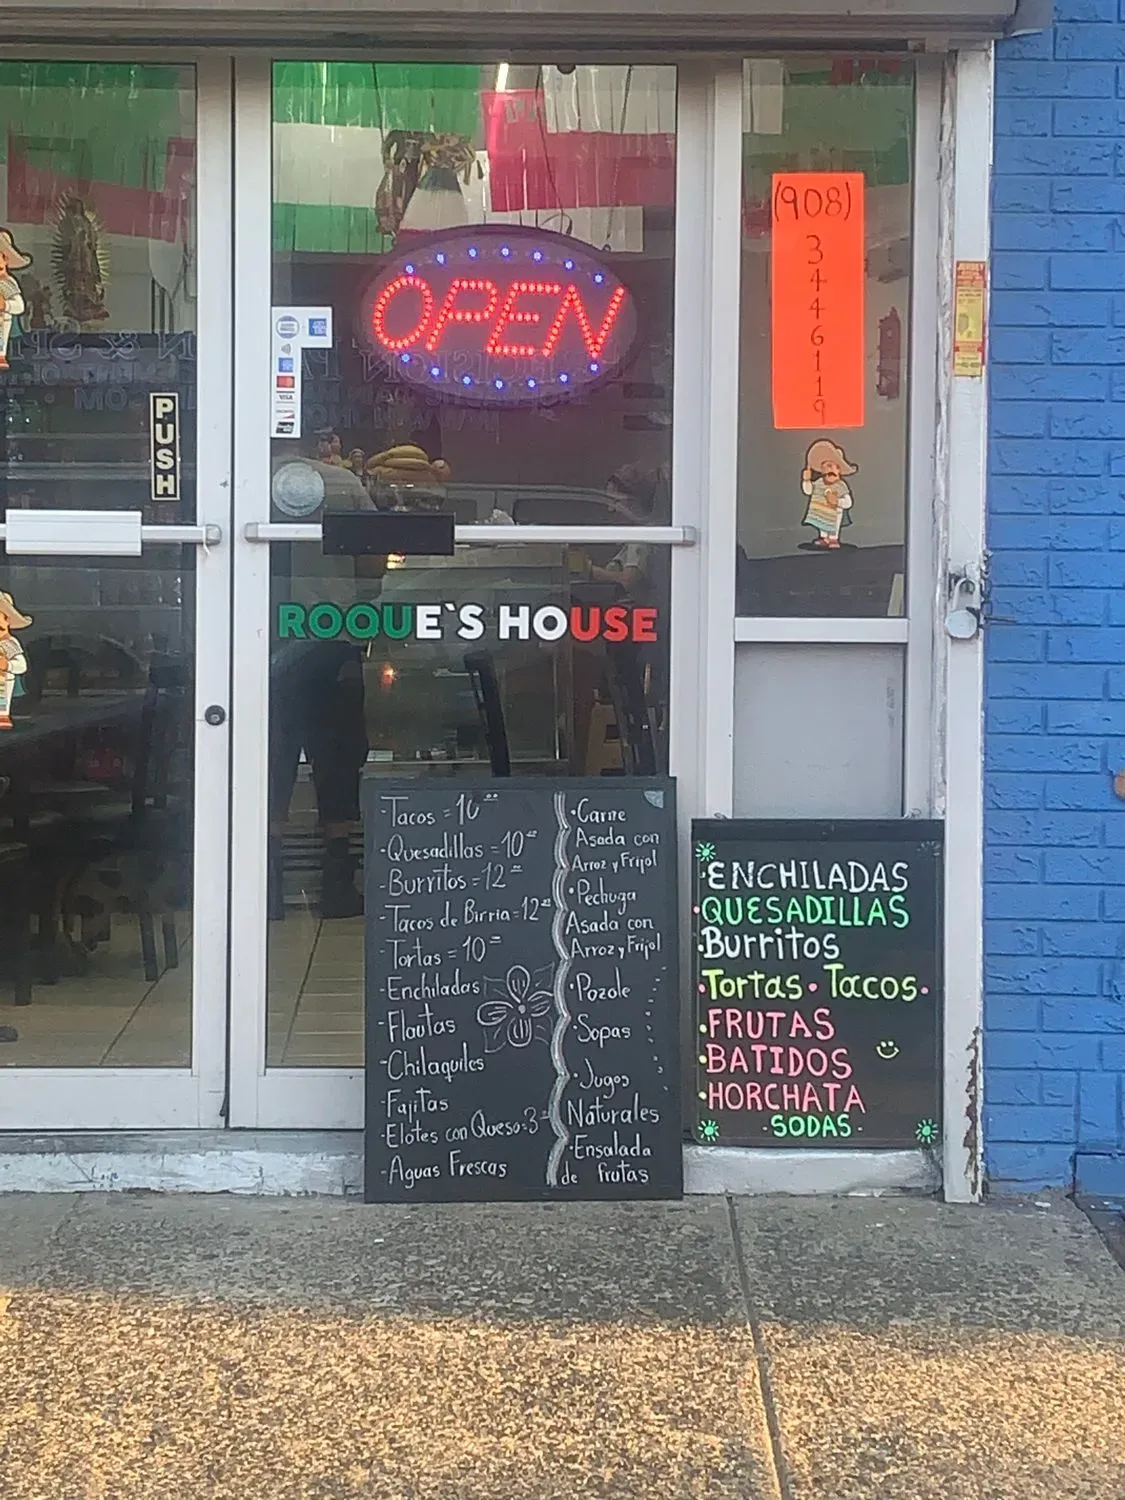 OPEN
(908)
3
4
4
6
1
1
9
PUSH
VISA
ROQUE`S HOUSE
-Tacos = 10 00
-Quesadillas = 10
-Burritos = 12
-Tacos de Birria = 12
-Tortas = 10
-Enchiladas
-Flautas
-Chilaquiles
-Fajitas
-Elotes con Queso = 3
-Aguas Frescas
•Carne
Asada con
Arroz y Frijol
•Pechuga
Asada con
Arroz y Frijol
•Pozole
•Sopas
•Jugos
Naturales
•Ensalada
de frutas
•ENCHILADAS
•QUESADILLAS
•Burritos
•Tortas • Tacos •
•FRUTAS
•BATIDOS
•HORCHATA
- SODAS -